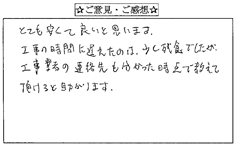 ☆ご意見・ご感想☆
とても安くて良いと思います。
工事の時間に遅えたのは、少し残念でしたが、
工事業者の連絡先も分かった時点で教えて
頂けると助かります。